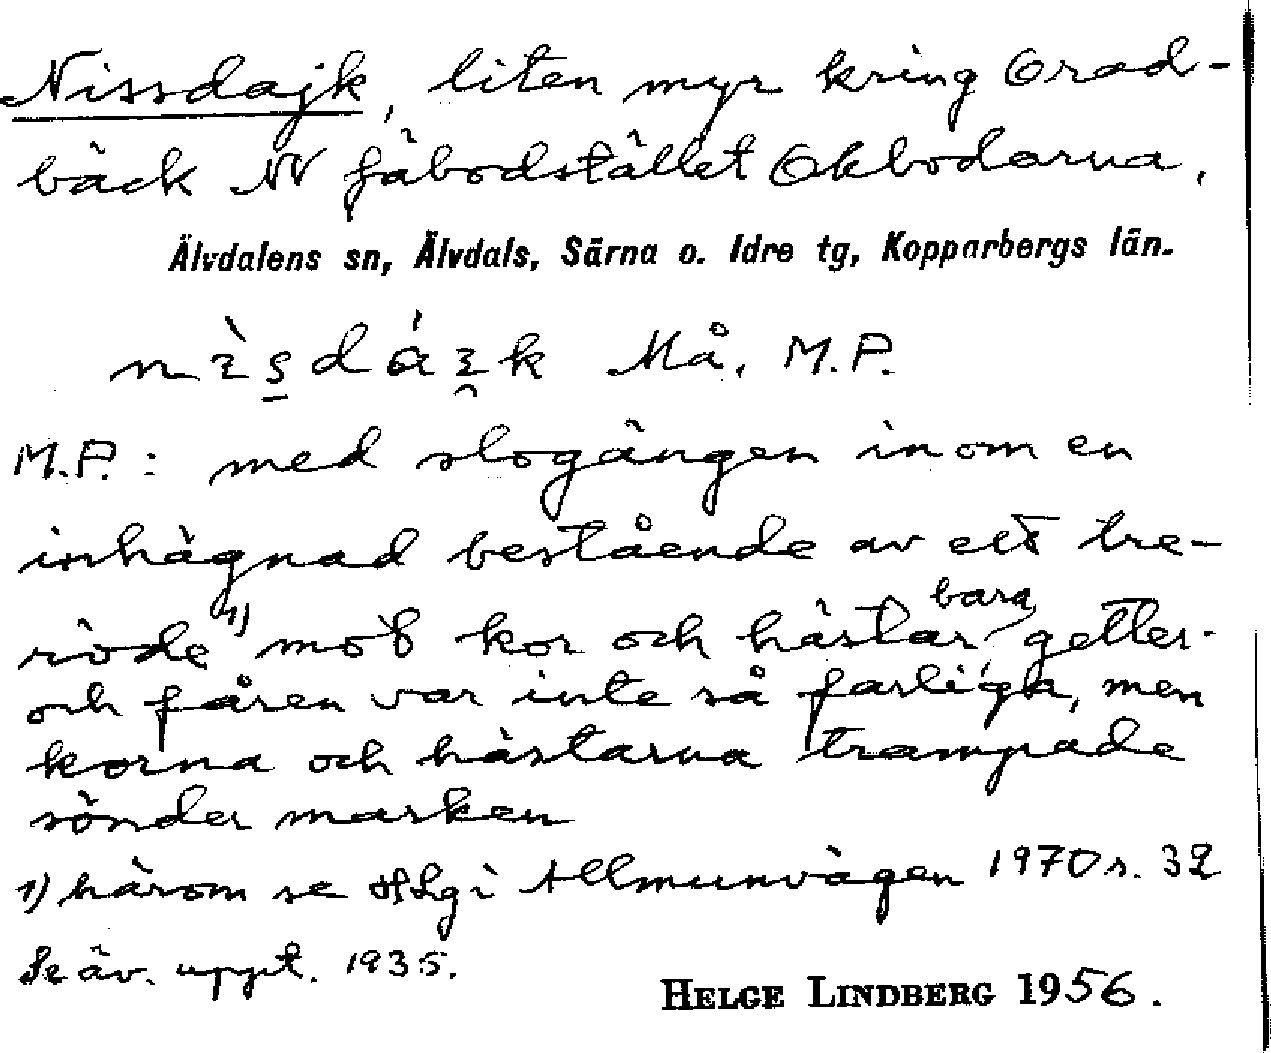 Nissdajk, liten myr kring Orad-
bäck NV fäbodstället Okbodarna,
Älvdalens sn, Älvdals, Särna o. Idre tg, Kopparbergs län.
Må, M.P.
M.P.: med slogången inom en
inhägnad bestående av ett tre-
röde 1) mot kor och hästar bara getter-
och fåren var inte så farliga, men
korna och hästarna trampade
sönder marken
1) härom se HLg i Allmunvägen 1970 s. 32
Se äv. uppt. 1935.
HELGE LINDBERG 1956.